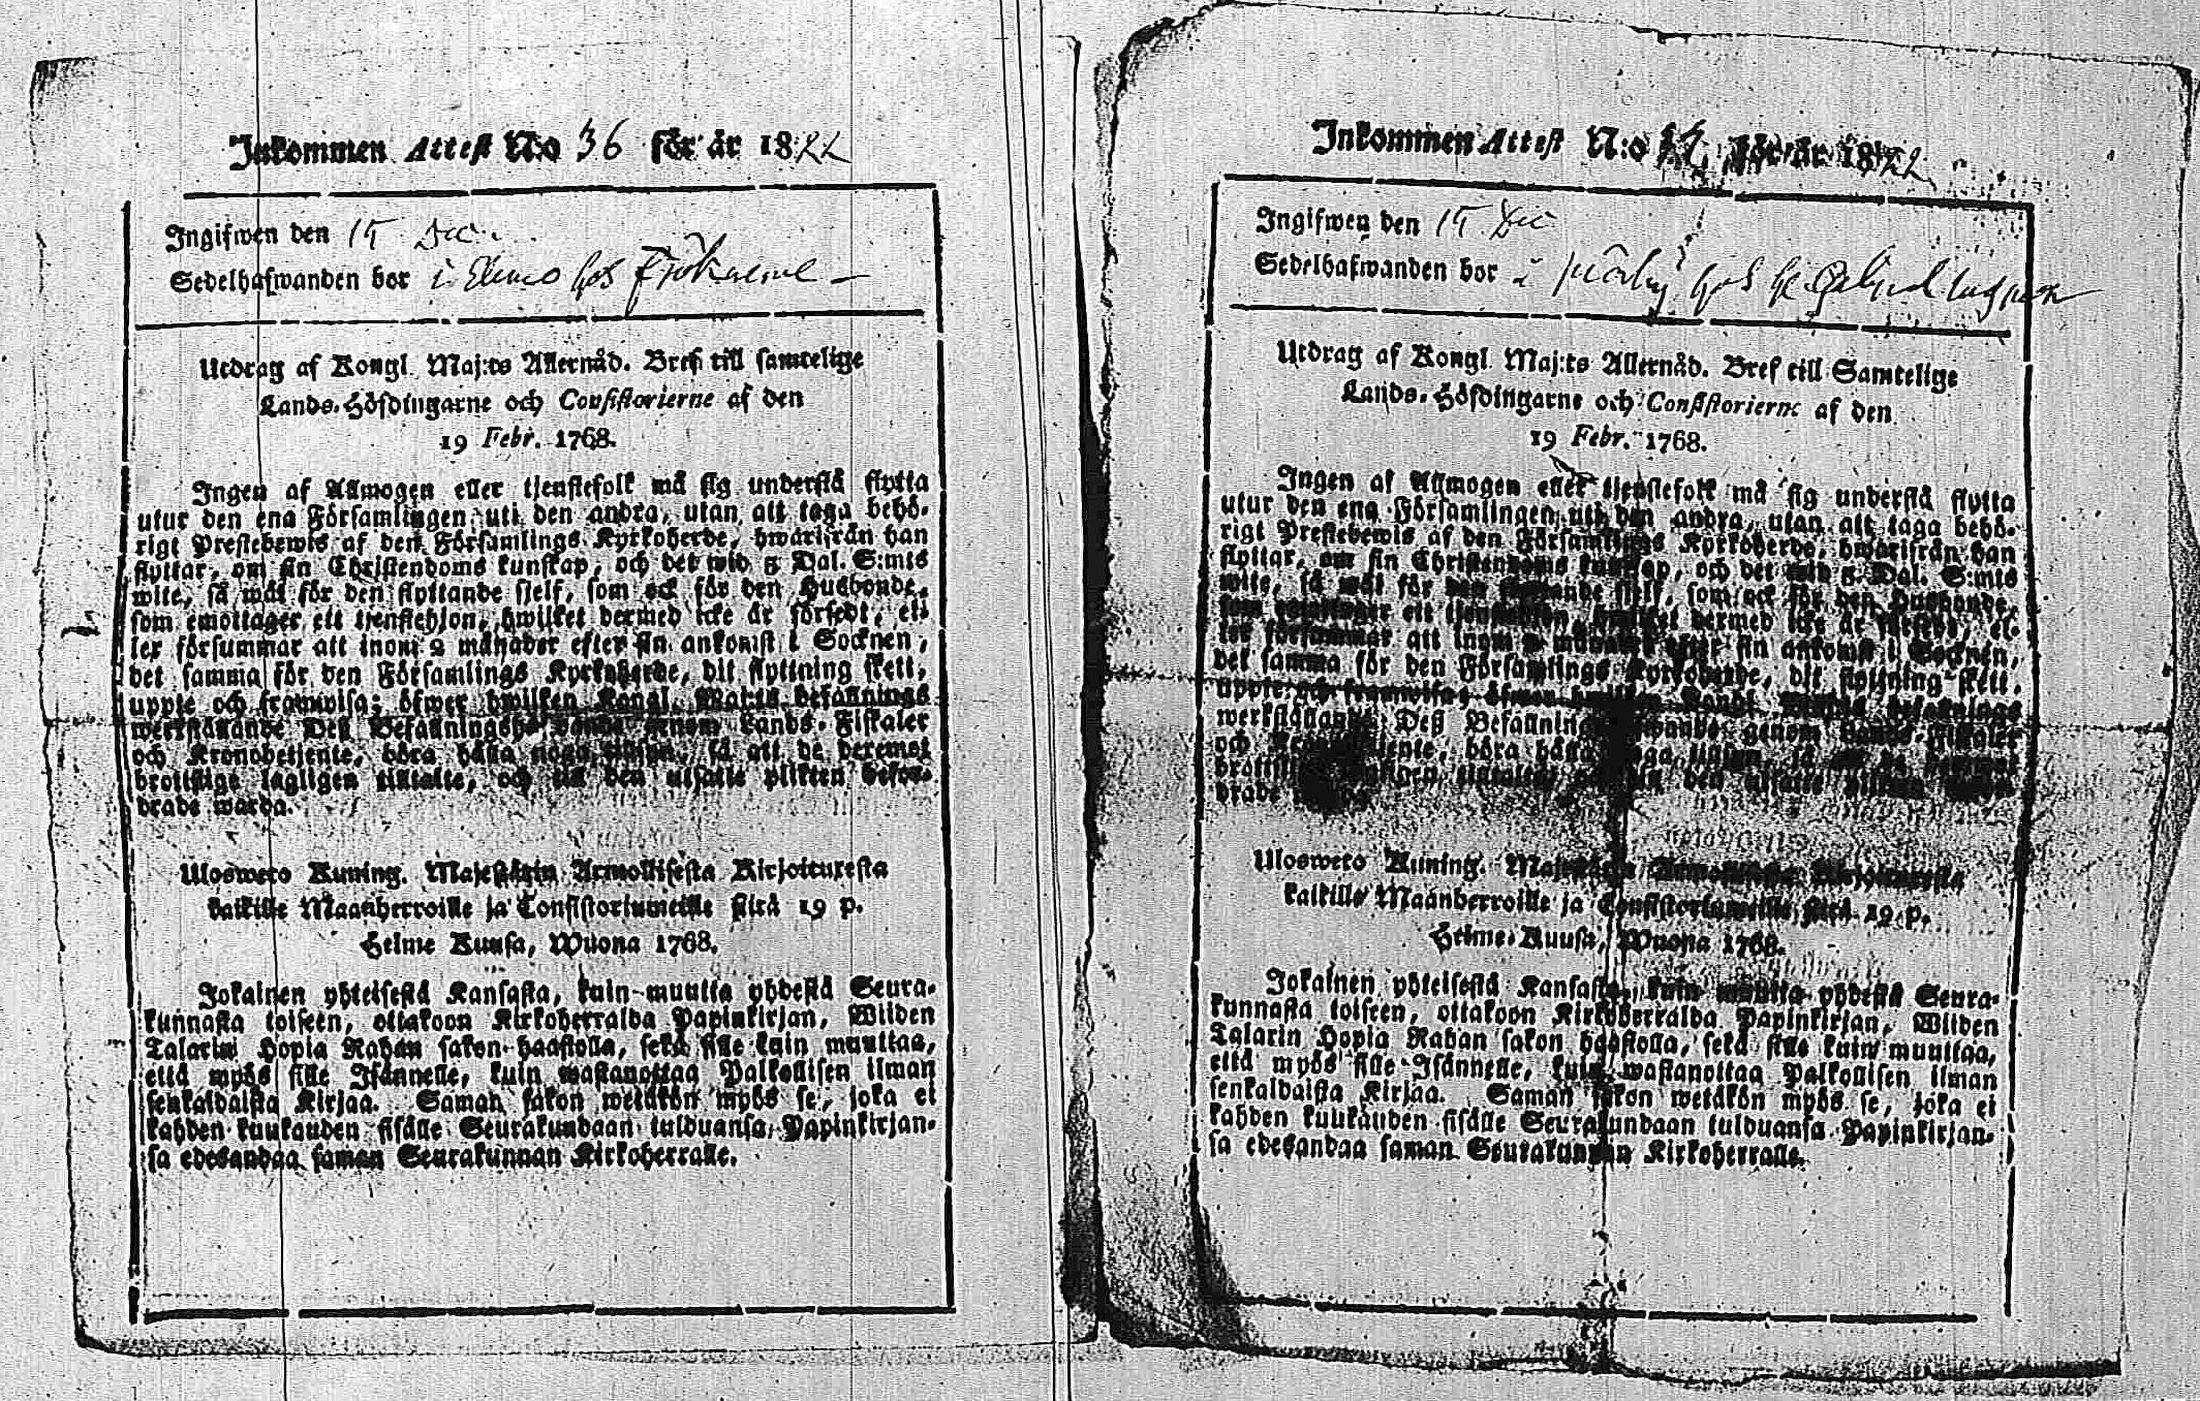 Inkommen Attest N:o 36 för år 1822
Ingifwen den 15 Dec.
Sedelhafwanden bor i hos
Utdrag af Kongl. Maj:ts Allernåd. Bref till samtelige
Lands-Höfdingarne och Consistorierne af den
19 Febr. 1768.
Ingen af Allmogen eller tjenstefolk må sig understå flytta
utur den ena Församlingen uti den andra, utan att taga behö-
rigt Prestebewis af den Församlings Kyrkoherde, hwarifrån han
flyttar, om sin Christendoms kunskap, och det wid 5 Dal. S:mts
wite, så wäl för den flyttande sjelf, som ock för den Husbonde,
som emottager ett tjenstehjon, hwilket dermed icke är försedt, el-
ler försummar att inom 2 månader efter sin ankomst i Socknen,
det samma för den Församlings Kyrkoherde, dit flyttning skett,
uppte och framwisa; öfwer hwilken Kongl. Maj:ts befallnings
werkställande Deß Befallningshafwande genom Lands-Fiskaler
och Kronobetjente, böra hålla noga tillsyn, så att de deremot
brottslige lagligen tilltalte, och till den utsatte plikten befor-
drade warda.
Ulosweto Kuning. Majestätin Armollisesta Kirjoituxesta
kaikille Maanherroille ja Consistoriumeille siitä 19 p.
Helme Kuusa, Wuona 1768.
Jokainen yhteisestä Kansasta, kuin muutta yhdestä Seura-
kunnasta toiseen, ottakoon Kirkoherralda Papinkirjan, Wiiden
Talarin Hopia Rahan sakon haastolla, sekä sille kuin muuttaa,
että myös sille Isännelle, kuin wastanottaa Palkollisen ilman
senkaldaista Kirjaa. Saman sakon wetäkön myös se, joka ei
kahden kuukauden sisälle Seurakundaan tulduansa, Papinkirjan-
sa edesandaa saman Seurakunnan Kirkoherralle.
Inkommen Attest N:o för år 1822
Ingifwen den 15 Dec
Sedelhafwanden bor i hos
Utdrag af Kongl. Maj:ts Allernåd. Bref till Samtelige
Lands-Höfdingarne och Consistorierne af den
19 Febr. 1768.
Ingen af Allmogen eller tjenstefolk må sig understå flytta
utur den ena Församlingen uti den andra, utan att taga behö-
rigt Prestebewis af den Församlings Kyrkoherde, hwarifrån han
flyttar, om sin Christendoms kunskap, och det wid 5 Dal. S:mts
wite, så wäl för den flyttande sjelf, som ock för den Husbonde,
som emottager ett tjenstehjon, hwilket dermed icke är försedt, el-
ler försummar att inom 2 månader efter sin ankomst i Socknen,
det samma för den Församlings Kyrkoherde, dit flyttning skett,
uppte och framwisa; öfwer hwilken Kongl. Maj:ts befallnings
werkställande Deß Befallningshafwande genom Lands-Fiskaler
och Kronobetjente, böra hålla noga tillsyn, så att de deremot
brottslige lagligen tilltalte, och till den utsatte plikten
drade
Ulosweto Kuning. Majestätin Armollisesta Kirjoituxesta
kaikille Maanherroille ja Consistoriumeille siitä 19 p.
Helme-Kuusa, Wuona 1768.
Jokainen yhteisestä Kansasta, kuin muutta yhdestä Seura-
kunnasta toiseen, ottakoon Kirkoherralda Papinkirjan, Wiiden
Talarin Hopia Rahan sakon haastolla, sekä sille kuin muuttaa,
että myös sille Isännelle, kuin wastanottaa Palkollisen ilman
senkaldaista Kirjaa. Saman sakon wetäkön myös se, joka ei
kahden kuukauden sisälle Seurakundaan tulduansa Papinkirjan-
sa edesandaa saman Seurakunnan Kirkoherralle.